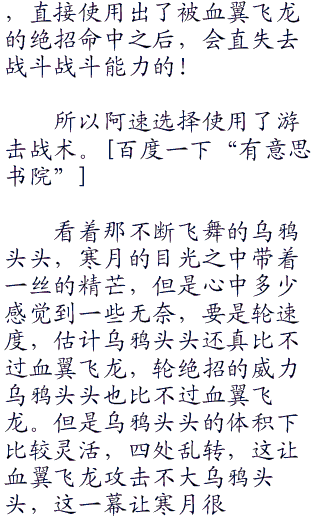 ，直接使用出了被血翼飞龙
的绝招命中之后，会直失去
战斗战斗能力的！
所以阿速选择使用了游
击战术。[百度一下“有意思
书院”]
看着那不断飞舞的乌鸦
头头，寒月的目光之中带着
一丝的精芒，但是心中多少
感觉到一些无奈，要是轮速
度，估计乌鸦头头还真比不
过血翼飞龙，轮绝招的威力
乌鸦头头也比不过血翼飞
龙。但是乌鸦头头的体积下
比较灵活，四处乱转，这让
血翼飞龙攻击不大乌鸦头
头，这一幕让寒月很